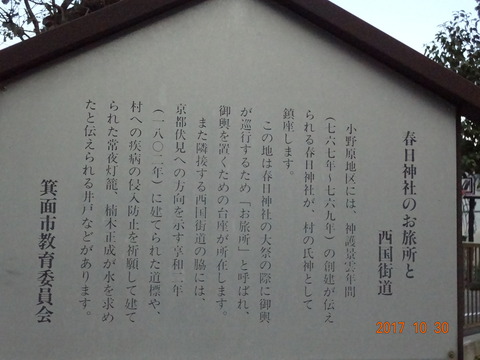 春日神社のお旅所と
西国街道
小野原地区には、神護景雲年間
（七六七年〜七六九年）の創建が伝え
られる春日神社が、村の氏神として
鎮座します。
この地は春日神社の大祭の際に御輿
が巡行するため「お旅所」と呼ばれ、
御輿を置くための台座が所在します。
また隣接する西国街道の脇には、
京都伏見への方向を示す享和二年
（一八〇二年）に建てられた道標や、
村への疾病の侵入防止を祈願して建て
られた常夜灯籠、楠木正成が水を求め
たと伝えられる井戸などがあります。
箕面市教育委員会
2017 10 30